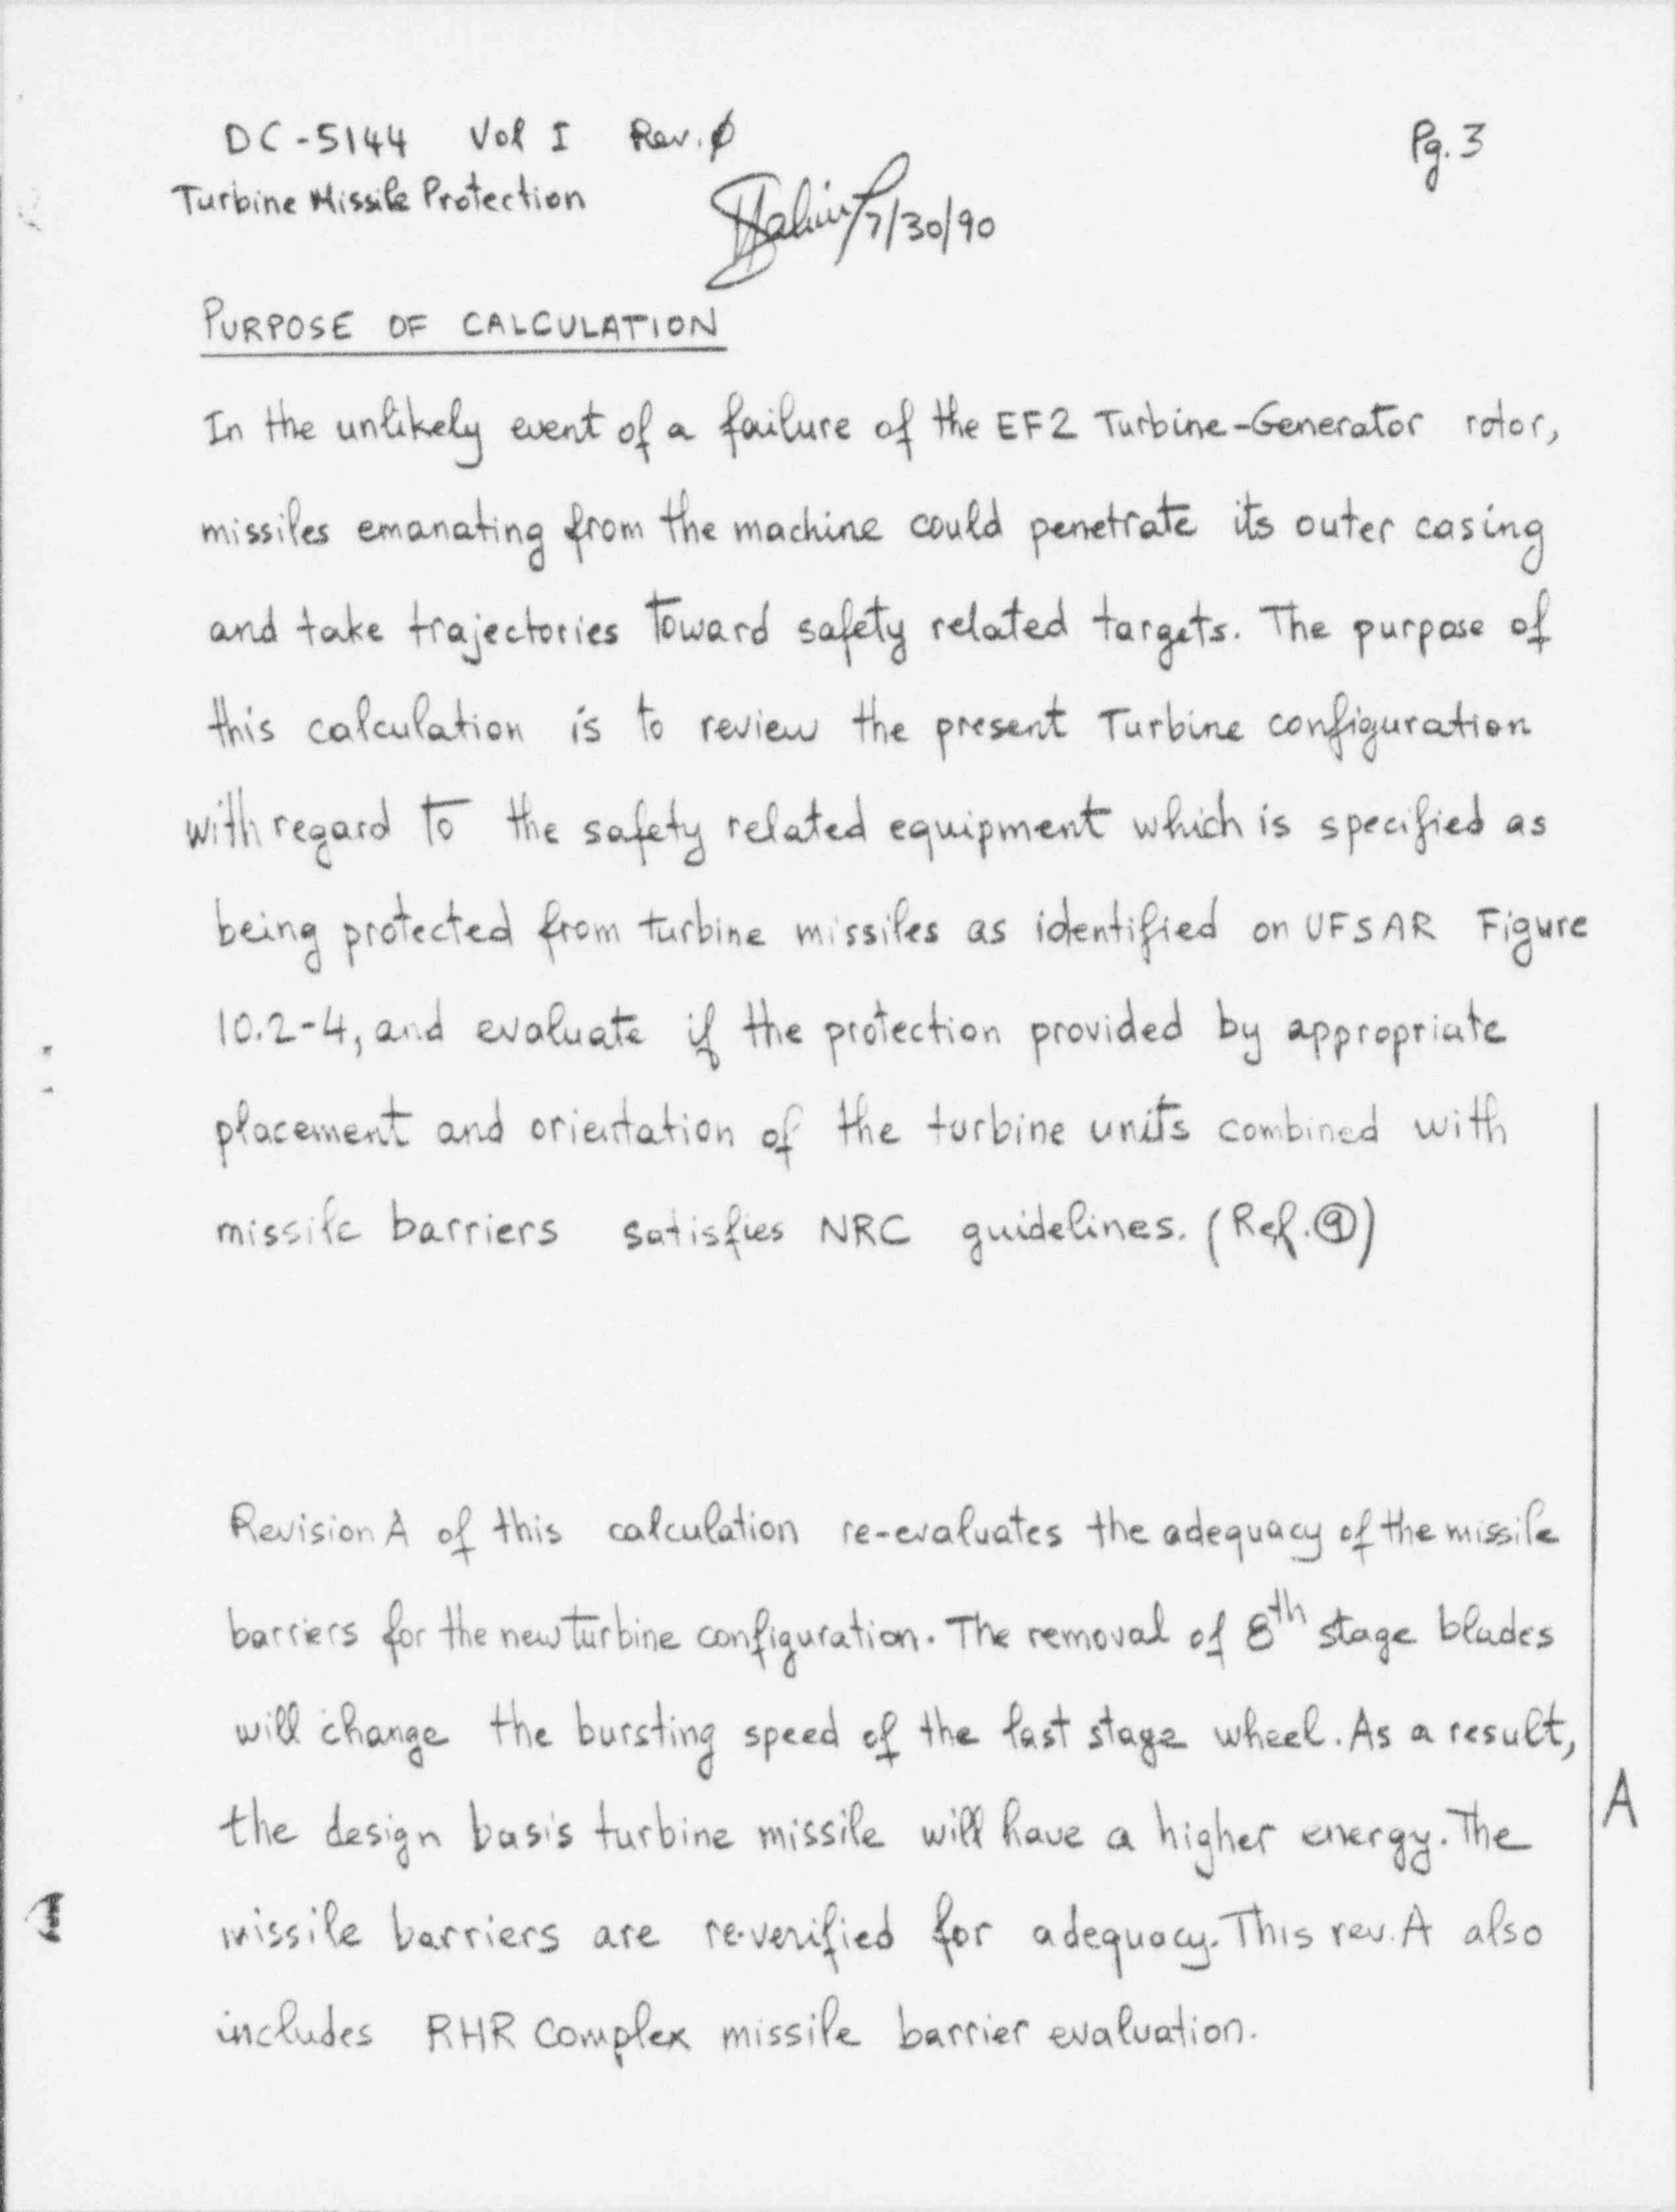 DC-5144 Vol I Rev. Ø
Pg. 3
Turbine Missile Protection
7/30/90
PURPOSE OF CALCULATION
In the unlikely event of a failure of the EF2 Turbine-Generator rotor,
missiles emanating from the machine could penetrate its outer casing
and take trajectories toward safety related targets. The purpose of
this calculation is to review the present Turbine configuration
with regard to the safety related equipment which is specified as
being protected from turbine missiles as identified on UFSAR Figure
10.2-4, and evaluate if the protection provided by appropriate
placement and orientation of the turbine units combined with
missile barriers satisfies NRC guidelines. (Ref. ⑨)
Revision A of this calculation re-evaluates the adequacy of the missile
barriers for the new turbine configuration. The removal of 8th stage blades
will change the bursting speed of the last stage wheel. As a result,
the design basis turbine missile will have a higher energy. The
A
missile barriers are re-verified for adequacy. This rev. A also
includes RHR complex missile barrier evaluation.